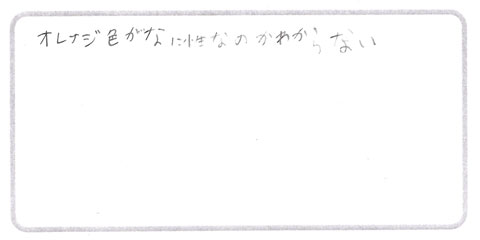 オレナジ色がなに性なのかわからない